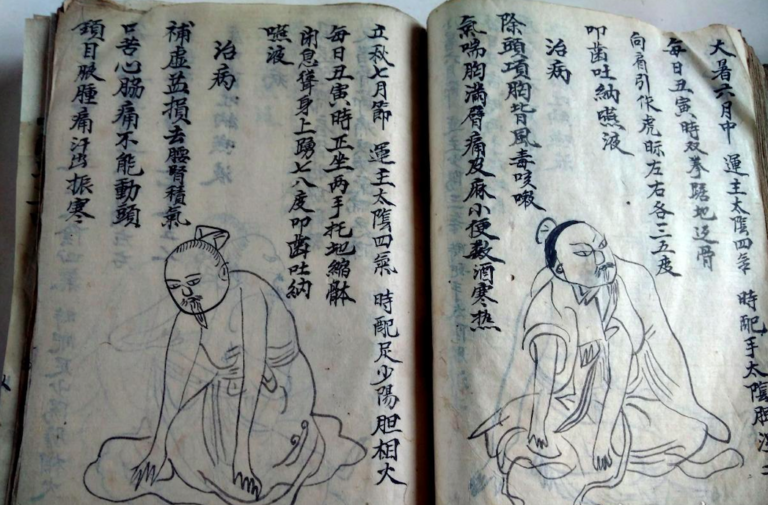 大暑六月中 運主太陰四氣 時配手太陰肺湿土
每日丑寅時双拳踞地返骨
向肩引作虎眎左右各三五度
叩齒吐納嚥液
治病
除頭項胸背風毒咳嗽
氣喘胸滿臂痛皮麻小便数洒寒热
立秋七月節 運主太陰四氣 時配足少陽胆相火
每日丑寅時正坐两手托地縮體
闭息聳身上踴七八度叩齒吐納
嚥液
治病
補虚益損去腰腎積氣
口苦心脇痛不能動頭
頷目脹腫痛汗出振寒